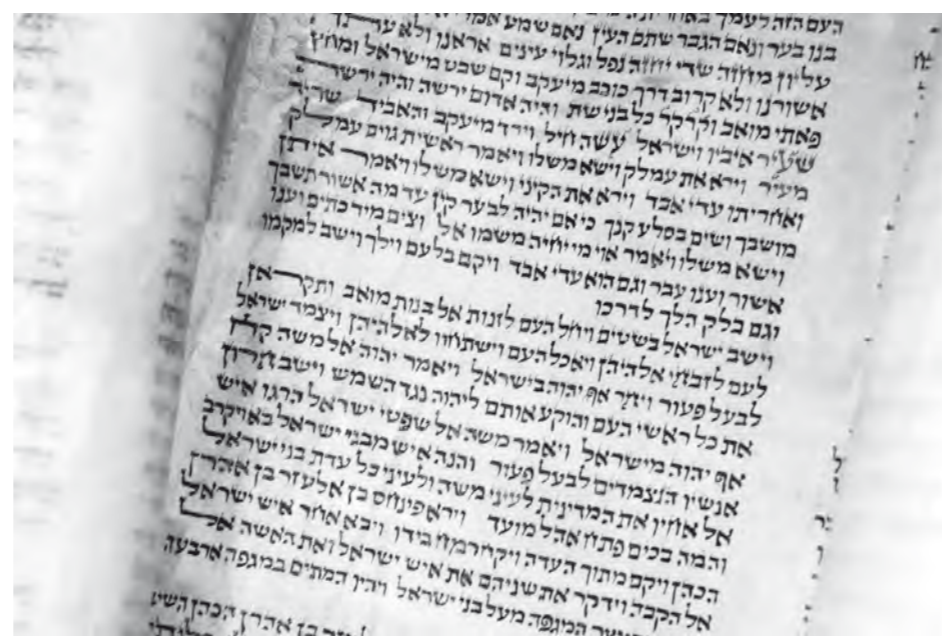 העם הזה לעמך באחרית
בנו בער ונאם הגבר שתם העין נאם שמע אמרי
עליון מחזה שדי יחזה נפל וגלוי עינים אראנו ולא עתה
אשורנו ולא קרוב דרך כוכב מיעקב וקם שבט מישראל ומחץ
פאתי מואב וקרקר כל בני שת והיה אדום ירשה והיה ירשה
שעיר איביו וישראל עשה חיל וירד מיעקב והאביד שריד
מעיר וירא את עמלק וישא משלו ויאמר ראשית גוים עמלק
ואחריתו עדי אבד וירא את הקיני וישא משלו ויאמר איתן
מושבך ושים בסלע קנך כי אם יהיה לבער קין עד מה אשור תשבך
וישא משלו ויאמר אוי מי יחיה משמו אל וצים מיד כתים וענו
אשור וענו עבר וגם הוא עדי אבד ויקם בלעם וילך וישב למקמו
וגם בלק הלך לדרכו
וישב ישראל בשטים ויחל העם לזנות אל בנות מואב ותקראן
לעם לזבחי אלהיהן ויאכל העם וישתחוו לאלהיהן ויצמד ישראל
לבעל פעור ויחר אף יהוה בישראל ויאמר יהוה אל משה קח
את כל ראשי העם והוקע אותם ליהוה נגד השמש וישב חרון
אף יהוה מישראל ויאמר משה אל שפטי ישראל הרגו איש
אנשיו הנצמדים לבעל פעור והנה איש מבני ישראל בא ויקרב
אל אחיו את המדינית לעיני משה ולעיני כל עדת בני ישראל
והמה בכים פתח אהל מועד וירא פינחס בן אלעזר בן אהרן
הכהן ויקם מתוך העדה ויקח רמח בידו ויבא אחר איש ישראל
אל הקבה וידקר את שניהם את איש ישראל ואת האשה אל
המגפה מעל בני ישראל ויהיו המתים במגפה ארבעה
בן אהרן הכהן